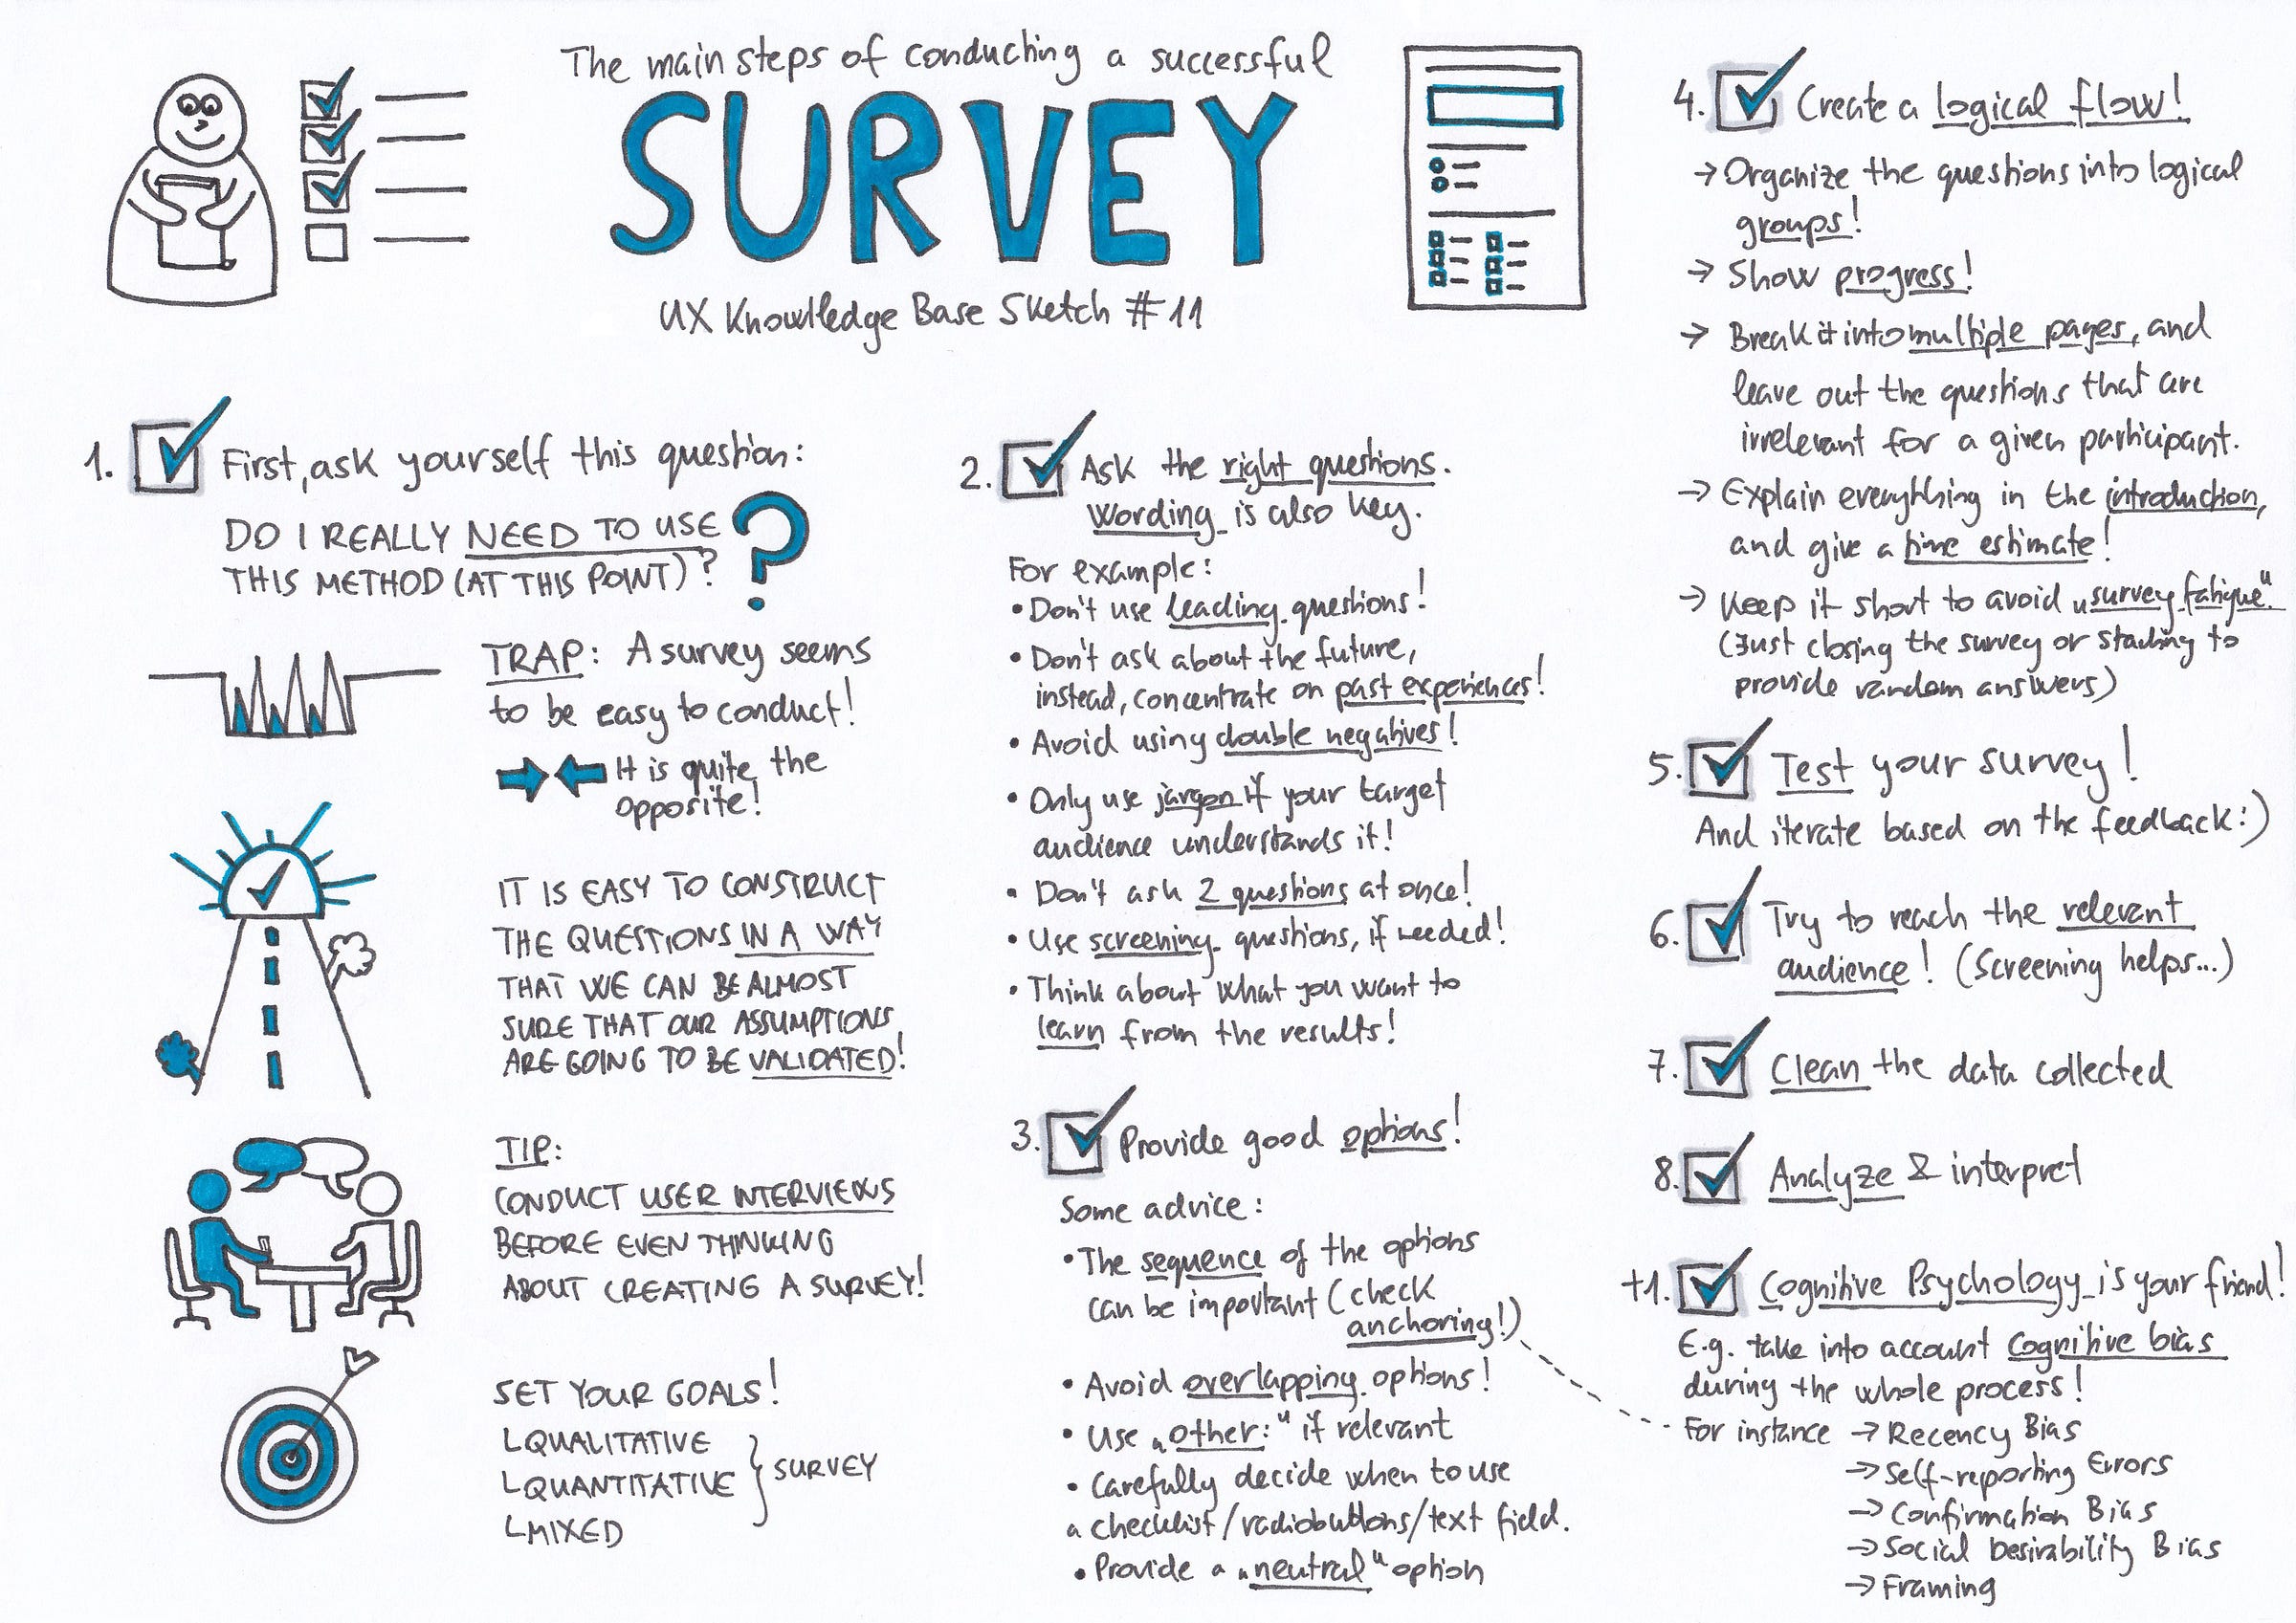 The main steps of conducting a successful
SURVEY
UX Knowledge Base Sketch #11
1. First, ask yourself this question:
DO I REALLY NEED TO USE
THIS METHOD (AT THIS POINT)?
?
TRAP: A survey seems
to be easy to conduct!
It is quite the
opposite!
IT IS EASY TO CONSTRUCT
THE QUESTIONS IN A WAY
THAT WE CAN BE ALMOST
SURE THAT OUR ASSUMPTIONS
ARE GOING TO BE VALIDATED!
TIP:
CONDUCT USER INTERVIEWS
BEFORE EVEN THINKING
ABOUT CREATING A SURVEY!
SET YOUR GOALS!
QUALITATIVE
QUANTITATIVE } SURVEY
MIXED
2. Ask the right questions.
Wording is also key.
For example:
• Don't use leading questions!
• Don't ask about the future,
instead, concentrate on past experiences!
• Avoid using double negatives!
• Only use jargon if your target
audience understands it!
• Don't ask 2 questions at once!
• Use screening questions, if needed!
• Think about what you want to
learn from the results!
3. Provide good options!
Some advice:
• The sequence of the options
can be important (check
anchoring!)
• Avoid overlapping options!
• Use „other:" if relevant
• Carefully decide when to use
a checklist/radiobuttons/text field.
• Provide a „neutral" option
4. Create a logical flow!
→ Organize the questions into logical
groups!
→ Show progress!
→ Break it into multiple pages, and
leave out the questions that are
irrelevant for a given participant.
→ Explain everything in the introduction,
and give a time estimate!
→ Keep it short to avoid „survey fatigue"
(Just closing the survey or starting to
provide random answers)
5. Test your survey!
And iterate based on the feedback :)
6. Try to reach the relevant
audience! (Screening helps...)
7. Clean the data collected
8. Analyze & interpret
+1. Cognitive Psychology is your friend!
E.g. take into account Cognitive bias
during the whole process!
For instance → Recency Bias
→ Self-reporting Errors
→ Confirmation Bias
→ Social Desirability Bias
→ Framing